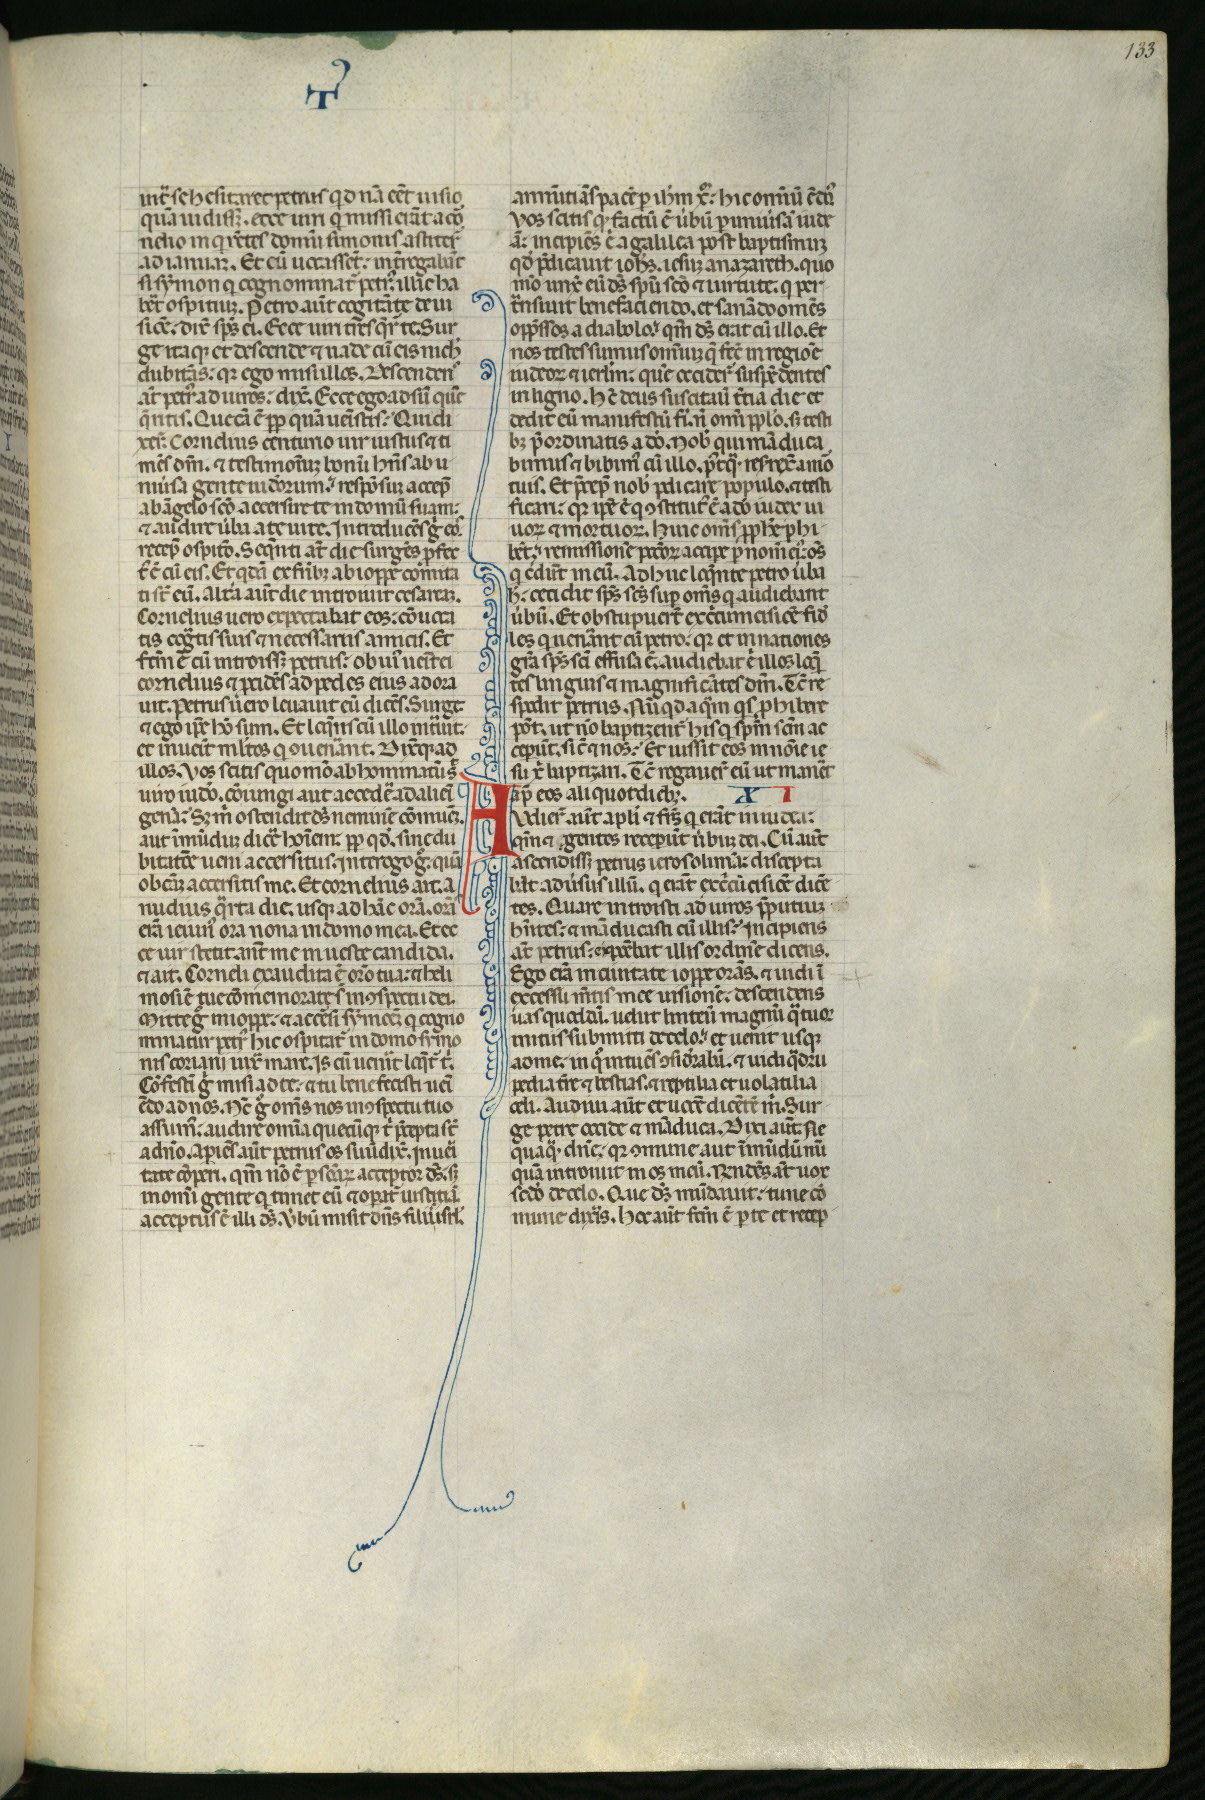 133
T
int̃ se hesitaret petrus qd nā eēt uisio
quā uidiss;. ecce uiri q missi erāt a cor
nelio inqͥrētes domū simonis astiter̃
ad ianuaꝫ. Et cū uocassēt: int̃rogabāt
si symon q cognominat᷑ petrꝰ illic ha
bet᷑ ospitiuꝫ. Petro aūt cogitāte de ui
sioē: dix̃ sp̄s ei. Ecce uiri tres q̄r̃t te. Sur
ge itaqꝫ et descende ⁊ uade cū eis nich̄
dubitās: qꝛ ego misi illos. Descendens
aūt petrꝰ ad uiros: dix̃. Ecce ego adsū quē
q̄ritis. Que cā ē ꝓp quā uenistis: Qui di
xer̃t. Cornelius centurio uir iustus ⁊ ti
mēs dm̄. ⁊ testimoniuꝫ bonū hn̄s ab u
niuīsa gente iudeorum: respōsuꝫ accep̄
ab āngelo sc̄o accersire te in domū suam:
⁊ audire ūba a te uite. Introducēs ḡ eos
recep̄ ospitio. Seqn̄ti at̄ die surgēs ꝓfec
tꝰ ē cū eis. Et qdā ex fr̄ibꝫ ab ioppe comita
ti sūt eū. Alt̃a aūt die introiuit cesareaꝫ.
Cornelius uero expectabat eos: cōuoca
tis cogͣtis suis ⁊ necessariis amicis. Et
fctm̄ ē cū introiss; petrus: obuiꝰ uenit ei
cornelius ⁊ procidēs ad pedes eius adora
uit. Petrus ūero leuauit eū dicēs. Surge
⁊ ego ip̄e hō sum. Et loqn̄s cū illo intͣuit:
et inuenit ml̄tos q ꝯuenerant. Dixitqꝫ ad
illos. Vos scitis quomō abhominatū sit
uiro iudeo. cōiungi aut accedē ad alieni
genā: Sꝫ m̄ ostendit dꝰ neminē cōmuēꝫ.
aut īmūduꝫ dicē hoīem: ꝓp qd̄. sine du
bitatōe ueni accersitus. Interrogo ḡ: quā
ob cāꝫ accersitis me. Et cornelius ait. A
nudius q̄rta die. usqꝫ ad hāc orā. orās
erā ieiunꝰ ora nona in domo mea. Et ec
ce uir stetit ante me in ueste candida.
⁊ ait. Corneli exaudita ē orō tua: ⁊ heli
mosiē tue cōmemorate s̄t in ꝯspectu dei.
Mitte ḡ in ioppe: ⁊ accersi symonē q cogno
minatur petrꝰ hic ospitat᷑ in domo symo
nis coriarii iux̃ mare. Is cū uenit̃ loq̃t᷑ t̃.
Cōfestī ḡ misi ad te: ⁊ tu bene fecisti ueni
ēdo ad nos. Nc̄ ḡ om̄s nos in ꝯspectu tuo
assumꝰ: audire omīa quecūqꝫ t̃ p̄cepta sūt
a dn̄o. Apiēs aūt petrus os suū dix̃. In ueri
tate cōperi. qm̄ nō ē ꝑsonaꝝ acceptor dꝰ. sꝫ
in omni gente q timet eū ⁊ opat᷑ iusticiā.
acceptus ē illi dꝰ. Vbū misit dn̄s filiis isrl̄.
annūtiās pacē ꝑ ih̄m xp̄m: hic omniū ē dn̄s
Vos scitis qꝫ factū ē ūbū ꝑ uniūsā iude
ā: incipiēs .n̄. a galilea post baptismuꝫ
qd̄ p̄dicauit ioh̄s. iesuꝫ a nazareth. quo
mō unx̃ eū dꝰ spū sc̄o ⁊ uirtute. q per
tnsiuit benefaciendo. et sanādo om̄es
opp̄ssos a diabolo: qm̄ dꝰ erat cū illo. Et
nos testes sumus omniuꝫ q̄ fec̄ in regiōe
iudeoꝝ ⁊ ierlm̄: quē occider̄t suspēdentes
in ligno. Hc̄ deus suscitauit t̃tia die et
dedit eū manifestū fi. n̄ omī pplo. sꝫ testi
bꝫ p̄ordinatis a dō. Nob̄ qui māduca
uimus ⁊ bibimꝰ cū illo. pͥtqꝫ resrex̃ a mor
tuis. Et p̄cep̄ nob̄ p̄dicare populo. ⁊ testi
ficari: qꝛ ip̄e ē q ꝯstitutꝰ ē a dō iudex ui
uoꝝ ⁊ mortuoꝝ. Huic om̄s pp̄he phi
bēt: remissionē pcc̄oꝝ accipe ꝑ nomē eiꝰ oēs
q c̄dūt in eū. Adhuc loqn̄te petro ūba
h̄: cecidit sp̄s sc̄s suꝑ om̄s q audiebant
ūbū. Et obstupuer̄t ex circumcisiōe fidel
les q uenānt cū petro: qꝛ et in nationes
grā sp̄s sc̄i effusa ē. audiebāt .n̄. illos loqn̄
tes linguis ⁊ magnificātes dm̄. Tc̄ re
spōdit petrus. Nūqd aqͣm qs phibere
pōt. ut nō baptizent᷑ hi q spm̄ scm̄ ac
ceperūt. sic̄ ⁊ nos: Et iussit eos in nōie ie
su xp̄i baptizari. Tc̄ rogauer̄t eū ut manēt
apͩ eos aliquot diebꝫ. XI
Avdier̄t aūt apl̄i ⁊ fr̄s q erāt in iudea:
qm̄ ⁊ gentes receperūt ūbuꝫ dei. Cū aūt
ascendiss; petrus ierosolimā: discepta
bāt aduīsus illū. q erāt ex cir̄cūcisiōe dicē
tes. Quare introisti ad uiros p̄putiuꝫ
hn̄tes: ⁊ māducasti cū illis: Incipiens
aūt petrus: exponebat illis ordinē dicens.
Ego erā in ciuitate ioppe orās. ⁊ uidi ī
excessu mētis mee uisionē: descendens
uas quoddā. uelut linteū magnū qͣtuor
initiis submitti de celo: et uenit usqꝫ
ad me: in qͦ intuēs ꝯsidērabā. ⁊ uidi qͣdru
pedia t̃re ⁊ bestias. ⁊ reptilia et uolatilia
celi. Audiui aūt et uocē dicētē m̄. Sur
ge petre occide ⁊ māduca. Dixi aūt. Ne
quaqꝫ dn̄e: qꝛ ꝯmune aut īmūdū nū
quā introiuit in os meū. Rn̄dēs āt uox
sc̄do de celo. Que dꝰ mūdauit: tu ne cō
mune dixīs. Hoc aūt fctm̄ ē ꝑ ter et recep